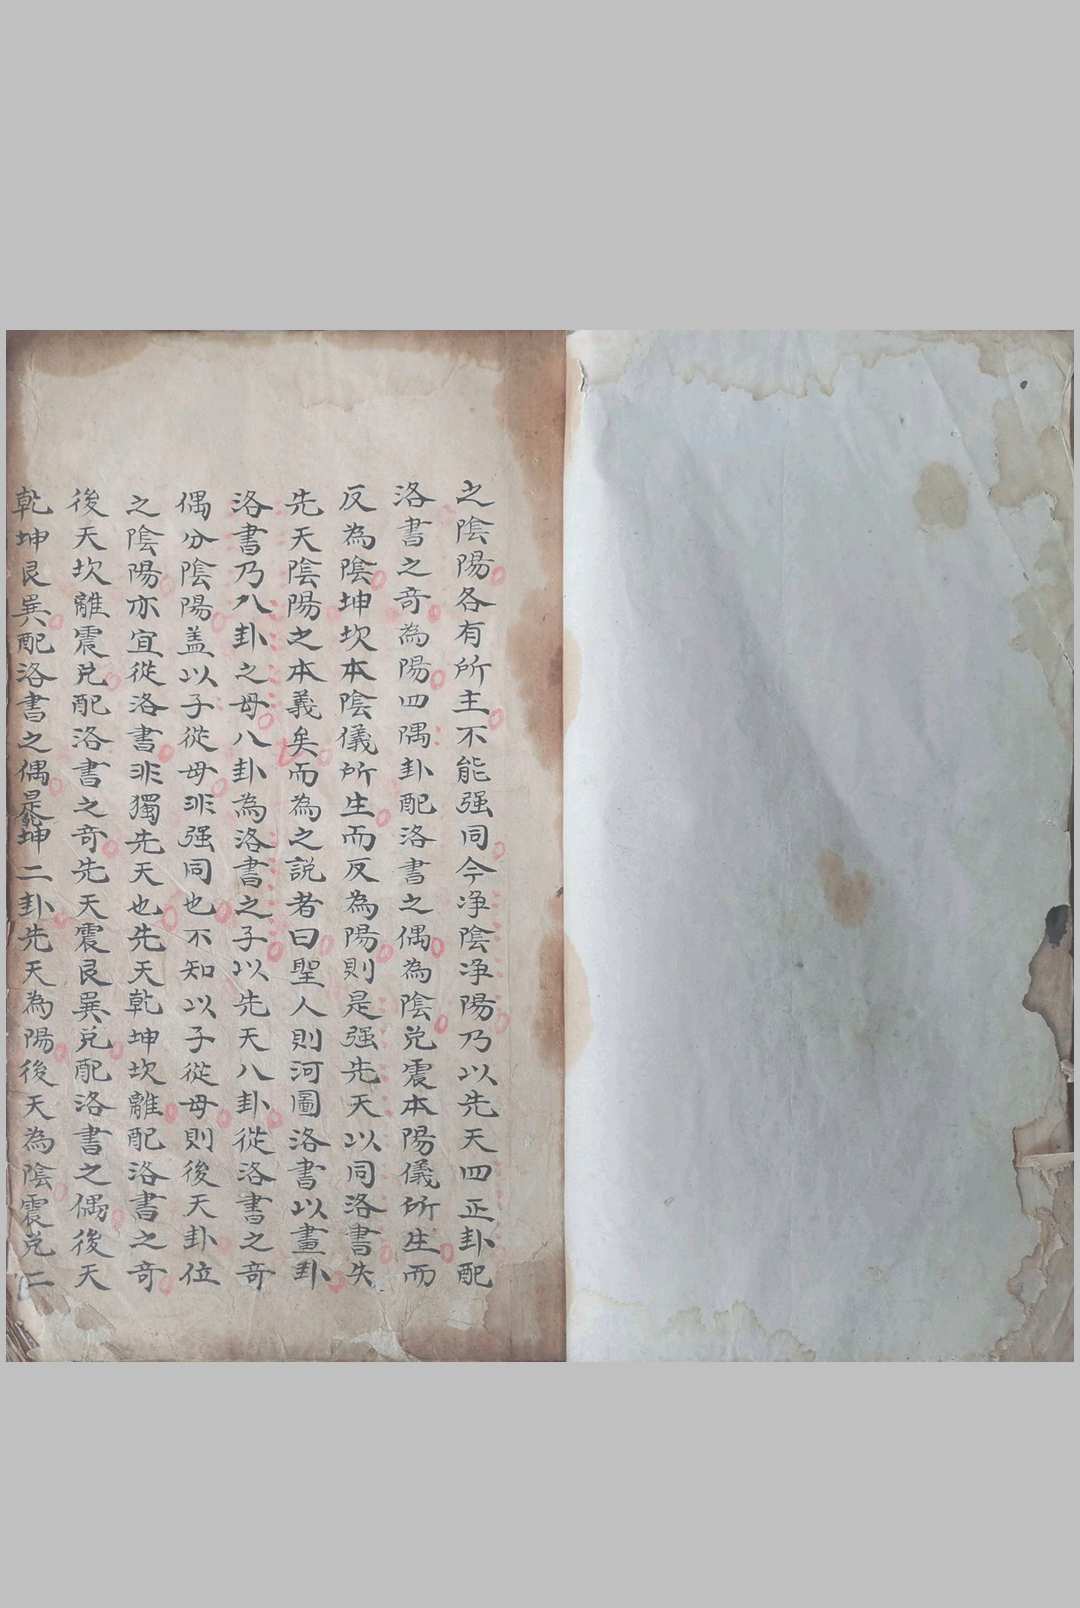 之陰陽各有所主不能强同今淨陰淨陽乃以先天四正卦配
洛書之奇為陽四隅卦配洛書之偶為陰兌震本陽儀所生而
反為陰坤坎本陰儀所生而反為陽則是强先天以同洛書失
先天陰陽之本義矣而為之説者曰聖人則河圖洛書以畫卦
洛書乃八卦之母八卦為洛書之子以先天八卦從洛書之奇
偶分陰陽盖以子從母非强同也不知以子從母則後天卦位
之陰陽亦宜從洛書非獨先天也先天乾坤坎離配洛書之奇
後天坎離震兌配洛書之奇先天震艮巽兌配洛書之偶後天
乾坤艮巽配洛書之偶是乾坤二卦先天為陽後天為陰震兌二